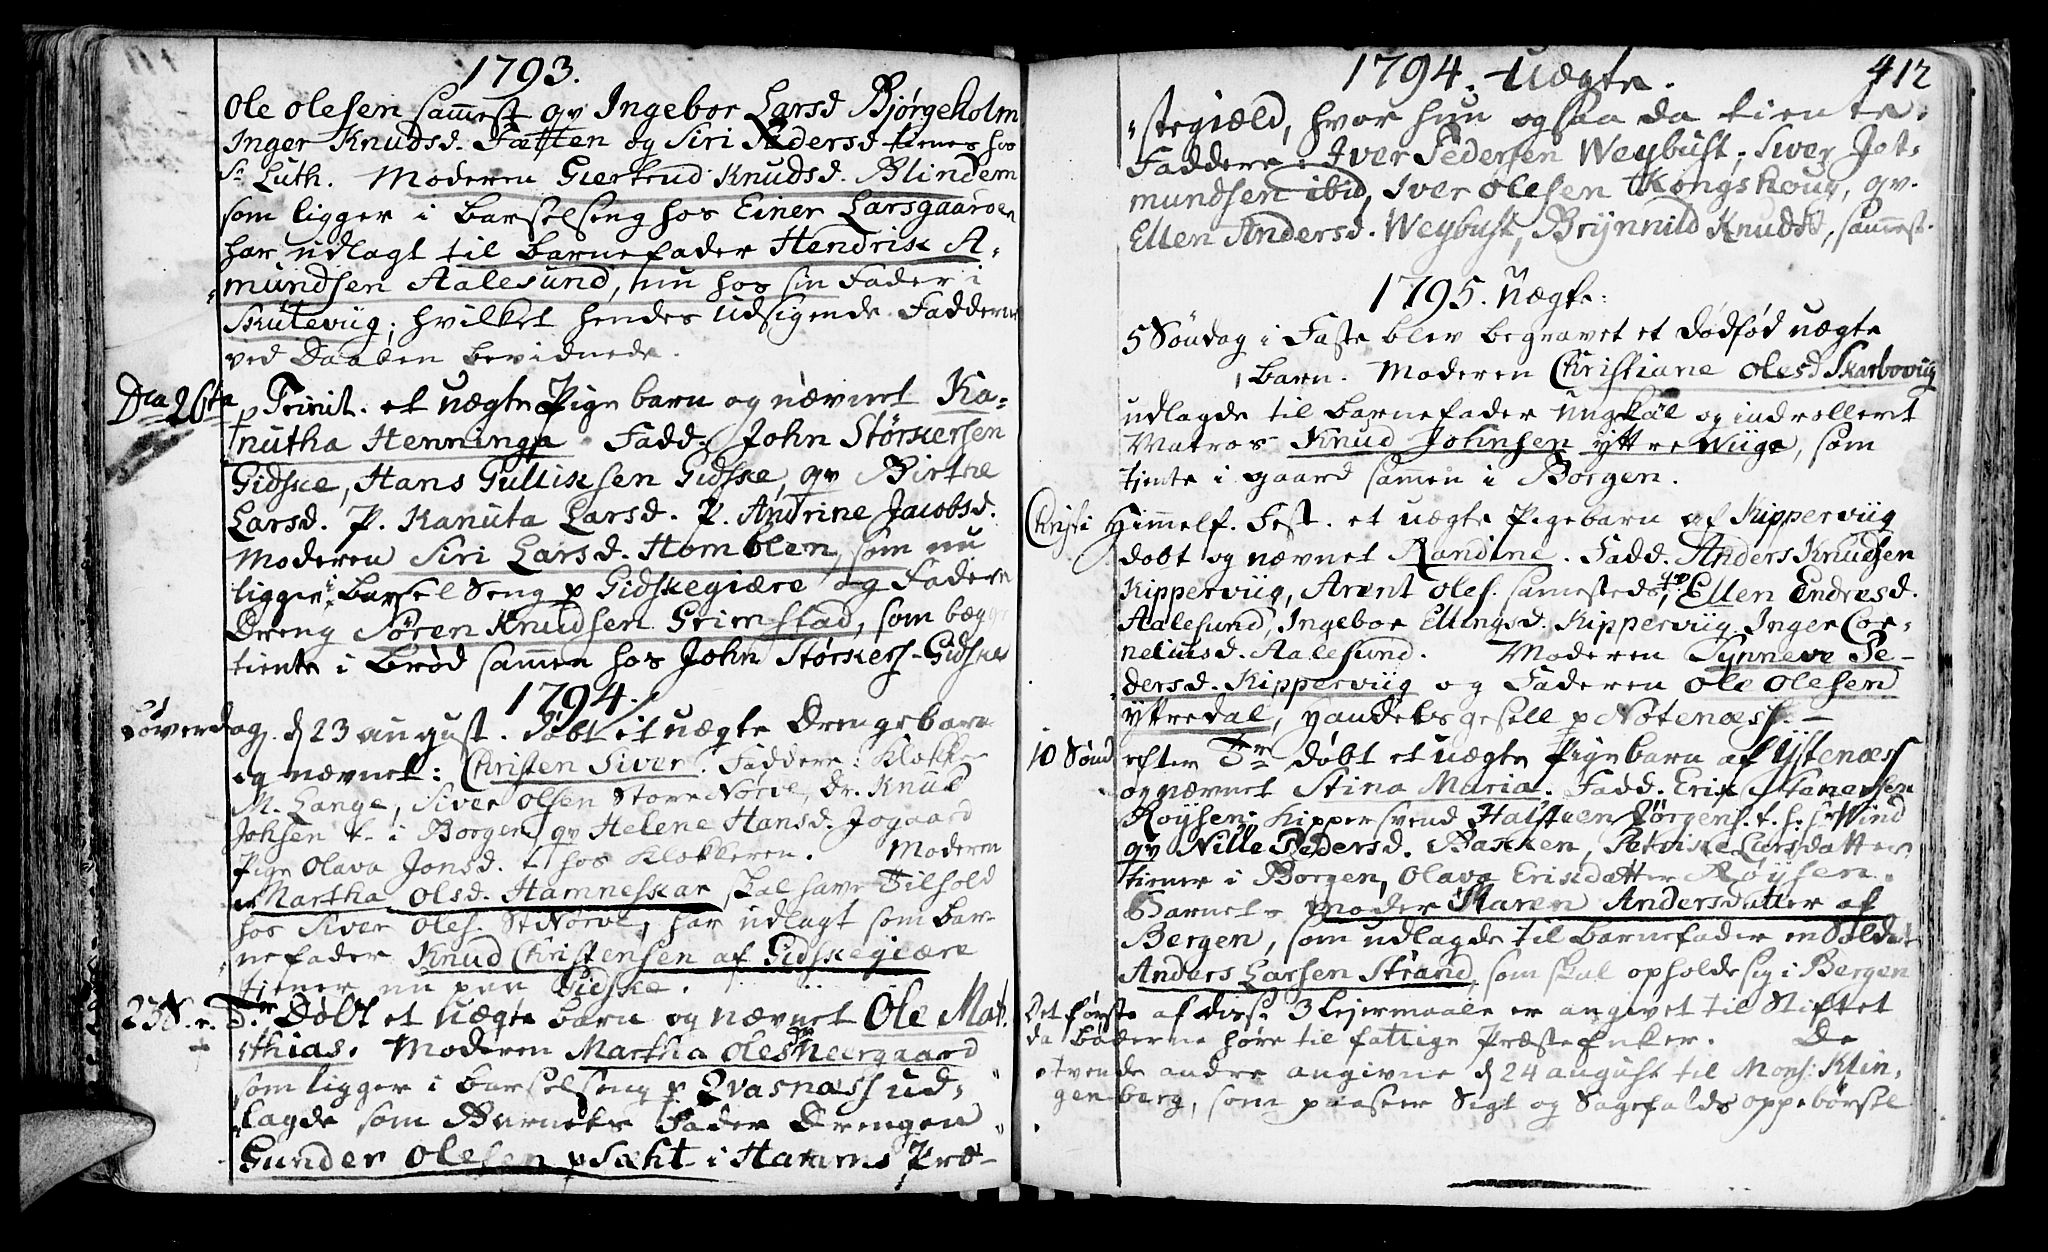 1793.
Ole Olesen sam̄est. qv Ingebor Larsd Bjørgeholm
Inger Knudsd. Fætten og Siri Pedersd tienes hos
Sr Luth. Moderen Giertrud Knudsd. Blindem
som ligger i Barselseng hos Einer Larsgaarden
har udlagt til Barnefader Hendrik A-
mundsen Aalesund, nu hos sin Fader i
Skuteviig; hvilket hendes Udsigende Fadderne
ved Daaben bevidnede.
Dca 26ta p Trinit. et uægte Pige barn og nævnet Ka-
nutha Henninga Fadd: John Størkersen
Gidske, Hans Gulliksen Gidske, qv Birthe
Larsd. P. Kanuta Larsd. P. Andrine Jacobsd.
Moderen Siri Larsd. Homblen, som nu
ligger i Barsel Seng p Gidskegiære og Faderen
Dreng Søren Knudsen Grimstad, som begge
tiente i Brød sammen hos John Størkers. Gidske
1794.
Løverdag d 23 august. døbt et uægte Drengebarn
og nævnet: Christen Siver. Faddere: Klokker
M. Lange, Siver Olsen Store Nørve, Dr. Knud
Johsen t. i Borgen qv Helene Hansd. Jogaard
Pige Olava Jonsd. t hos Klokkeren. Moderen
er Martha Olsd. Hamneskar, skal have Tilhold
hos Siver Oles. St Nørve, har udlagt som Bar-
nefader Knud Christensen af Gidskegiære
tiener nu paa Gidske.
23 S. e. Tr. Døbt et uægte Barn og nævnet Ole Mat-
thias. Moderen Martha Olesdr Neergaard
som ligger i Barselseng p Qvasnæss ud-
lagde som Barnets Fader Drengen
Gunder Olesen p Sæht i Hamms Præ-
1794. Uægte. 412
stegiæld, hvor hun ogsaa da tiente.
Faddere: Iver Pedersen Weybust, Siver Jet-
mundsen ibid, Iver Olesen Kongshoug, qv.
Ellen Andersd. Weybust, Brynnild Knudsd, sam̄est.
1795. Uægte:
5 Søndag i Faste blev begravet et dødfød uægte
Barn. Moderen Christiane Olesd Skarboviig
udlagde til Barnefader Ungkal og indrolleret
Matros Knud Johnsen yttre Wiige, som
tiente i gaard sam̄en i Borgen.
Christi Himmelf. Fest. et uægte Pigebarn af Kipperviig
døbt og nævnet Randine. Fadd. Anders Knudsen
Kipperviig, Arent Oles. samesteds, qv Ellen Endresd.
Aalesund, Ingebor Ellingsd. Kipperviig Inger Cor-
neliusd. Aalesund. Moderen Synneve Pe-
dersd. Kipperviig og Faderen Ole Olesen
Ytredal, Handelsgesell p Nøtenæss.
10 Sønd. efter Tr. døbt et uægte Pigebarn af Ystenæss
og nævnet Stina Maria. Fadd. Erik
Røysen. Kippersvend Halsteen Jørgens. t. h. Hr Wind
qv Nille Pedersd. Bakken, Petrike Larsdatter
tiener i Borgen, Olava Eriksdatter Røysen.
Barnets Moder Maren Andersdatter af
Bergen, som udlagde til Barnefader en Soldat
Anders Larsen Strand, som skal opholde sig i Bergen
Det første af disse 3 Lejermaale er angivet til Stiftet
da bøderne høre til fattige Præste Enker. De
tvende andre angivne d 24 august til Mons: Klin-
genberg, som paaseer Sigt og Sagefalds oppebørsel